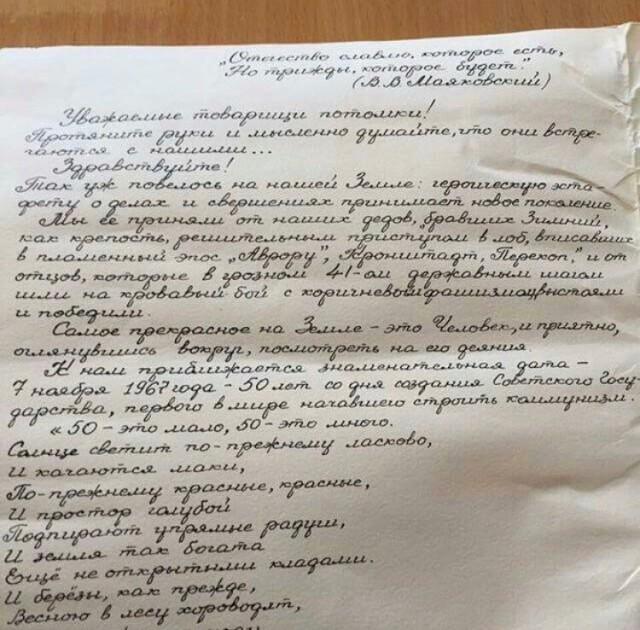 „Отечество славлю, которое есть,
Но трижды, которое будет."
(В.В. Маяковский)
Уважаемые товарищи потомки!
Протяните руки и мысленно думайте, что они встре-
чаются с нашими...
Здравствуйте!
Так уж повелось на нашей Земле: героическую эста-
фету о делах и свершениях принимает новое поколение.
Мы её приняли от наших дедов, бравших Зимний,
как крепость, решительным приступом в лоб, вписавших
в пламенный эпос „Аврору", Кронштадт, Перекоп," и от
отцов, которые в грозном 41-ом державным шагом
шли на кровавый бой с коричневым фашизмом, выстояли
и победили.
Самое прекрасное на Земле - это Человек, и приятно,
оглянувшись вокруг, посмотреть на его деяния.
К нам приближается знаменательная дата -
7 ноября 1967 года - 50 лет со дня создания Советского Госу-
дарства, первого в мире начавшего строить коммунизм.
« 50 - это мало, 50 - это много.
Солнце светит по-прежнему ласково,
И качаются маки,
По-прежнему красные, красные,
И простор голубой
Подпирают упрямые радуги,
И земля так богата
Ещё не открытыми кладами.
И берёзы, как прежде,
Весною в лесу хороводят,